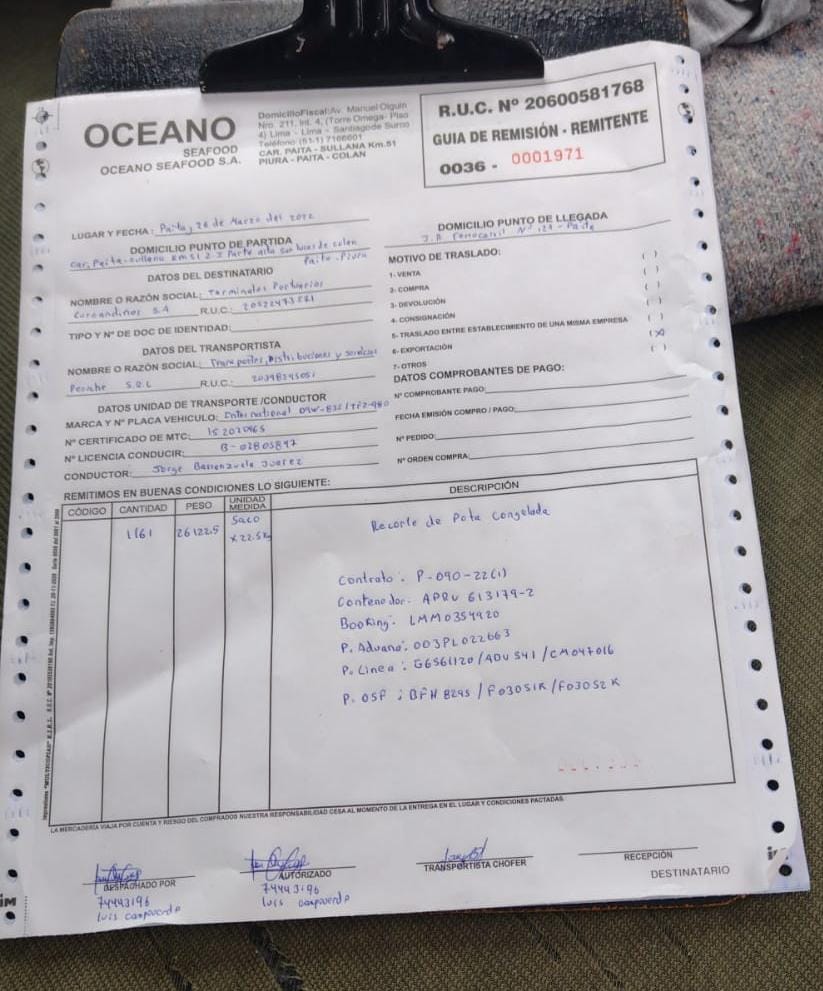 OCEANO
SEAFOOD
OCEANO SEAFOOD S.A.
DomicilioFiscal:Av. Manuel Olguin
Nro. 211, Int. 4, (Torre Omega- Piso
4) Lima - Lima - Santiagode Surco
Teléfono: (51-1) 7166601
CAR. PAITA - SULLANA Km.51
PIURA - PAITA - COLAN
R.U.C. Nº 20600581768
GUIA DE REMISIÓN - REMITENTE
0036 - 0001971
LUGAR Y FECHA: Paita, 26 de Marzo del 2022
DOMICILIO PUNTO DE PARTIDA
Car. Paita-Sullana Km 51 2-3 Parte alta San Lucas de Colan
Paita-Piura
DATOS DEL DESTINATARIO
NOMBRE O RAZÓN SOCIAL: Terminales Portuarios
Euroandinos S.A R.U.C.:
TIPO Y Nº DE DOC DE IDENTIDAD:
DATOS DEL TRANSPORTISTA
NOMBRE O RAZÓN SOCIAL: Transportes, Distribuciones y servicios
S.R.L R.U.C.:
DATOS UNIDAD DE TRANSPORTE /CONDUCTOR
MARCA Y Nº PLACA VEHICULO: International
Nº CERTIFICADO DE MTC:
Nº LICENCIA CONDUCIR: B-02803897
CONDUCTOR: Jorge Barranzuela Juarez
DOMICILIO PUNTO DE LLEGADA
Paita
MOTIVO DE TRASLADO:
1- VENTA ( )
2- COMPRA ( )
3- DEVOLUCIÓN ( )
4- CONSIGNACIÓN ( )
5- TRASLADO ENTRE ESTABLECIMIENTO DE UNA MISMA EMPRESA ( )
6- EXPORTACIÓN (X)
7- OTROS ( )
DATOS COMPROBANTES DE PAGO:
Nº COMPROBANTE PAGO:
FECHA EMISIÓN COMPRO / PAGO:
Nº PEDIDO:
Nº ORDEN COMPRA:
REMITIMOS EN BUENAS CONDICIONES LO SIGUIENTE:
CÓDIGO CANTIDAD PESO UNIDAD MEDIDA DESCRIPCIÓN
1161 26122.5 Saco x 22.5 Kg Recorte de Pota Congelada
Contrato: P-090-22(1)
Contenedor: APRU 613179-2
Booking: LMM0354920
P. Aduana: 003PL022663
P. Linea: G6561120/ADU541/CM047016
P. OSP: BFH 8295 / F03051K/F03052K
LA MERCADERÍA VIAJA POR CUENTA Y RIESGO DEL COMPRADOS NUESTRA RESPONSABILIDAD CESA AL MOMENTO DE LA ENTREGA EN EL LUGAR Y CONDICIONES PACTADAS.
DESPACHADO POR
74443196
luis campoverde
AUTORIZADO
74443196
luis campoverde
TRANSPORTISTA CHOFER
RECEPCIÓN
DESTINATARIO